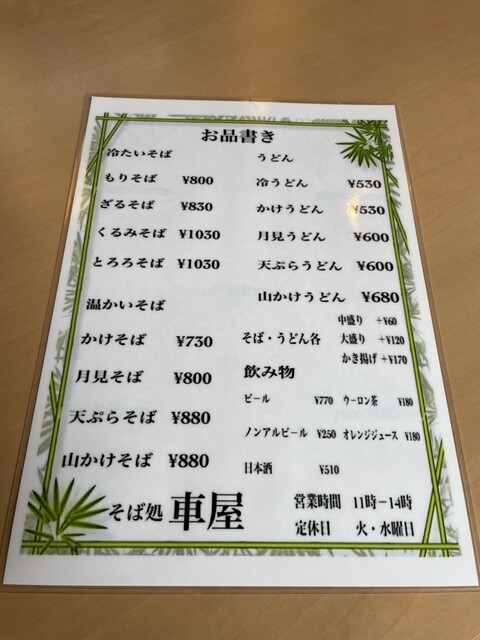 お品書き
冷たいそば
もりそば ¥800
ざるそば ¥830
くるみそば ¥1030
とろろそば ¥1030
温かいそば
かけそば ¥730
月見そば ¥800
天ぷらそば ¥880
山かけそば ¥880
うどん
冷うどん ¥530
かけうどん ¥530
月見うどん ¥600
天ぷらうどん ¥600
山かけうどん ¥680
中盛り +¥60
そば・うどん各 大盛り +¥120
かき揚げ +¥170
飲み物
ビール ¥770 ウーロン茶 ¥180
ノンアルビール ¥250 オレンジジュース ¥180
日本酒 ¥510
そば処 車屋
営業時間 11時－14時
定休日 火・水曜日